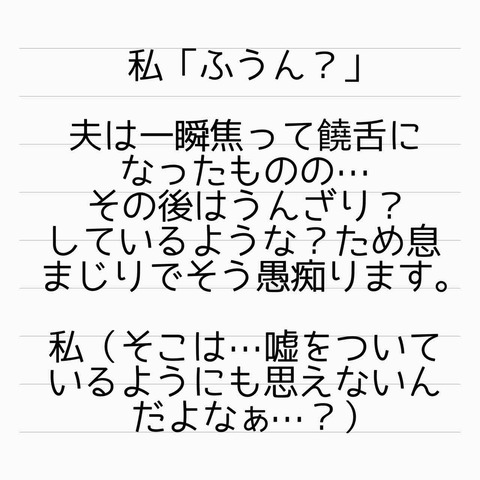 私「ふうん？」
夫は一瞬焦って饒舌に
なったものの…
その後はうんざり？
しているような？ため息
まじりでそう愚痴ります。
私（そこは…嘘をついて
いるようにも思えないん
だよなぁ…？）